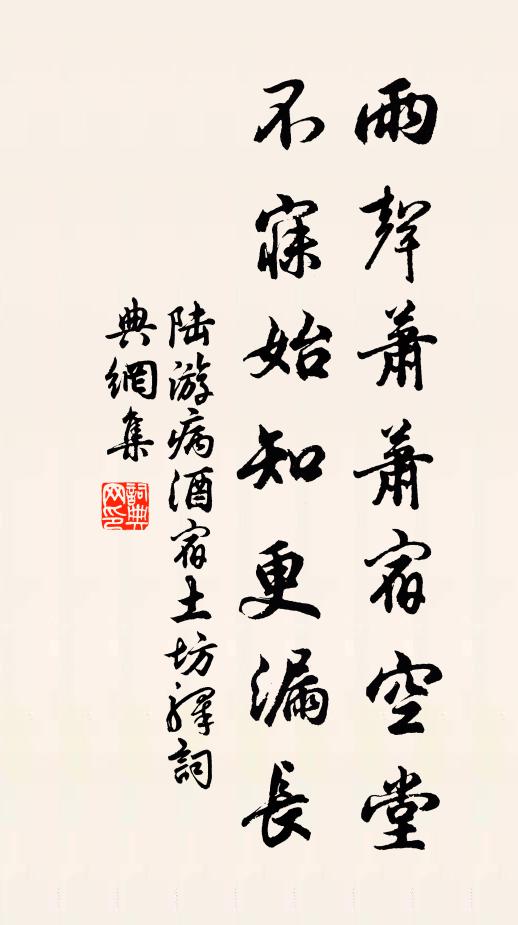 雨聲蕭蕭宿空堂
不寐始知更漏長
陆游病酒宿土坊驛詞
典網集
詞典網印